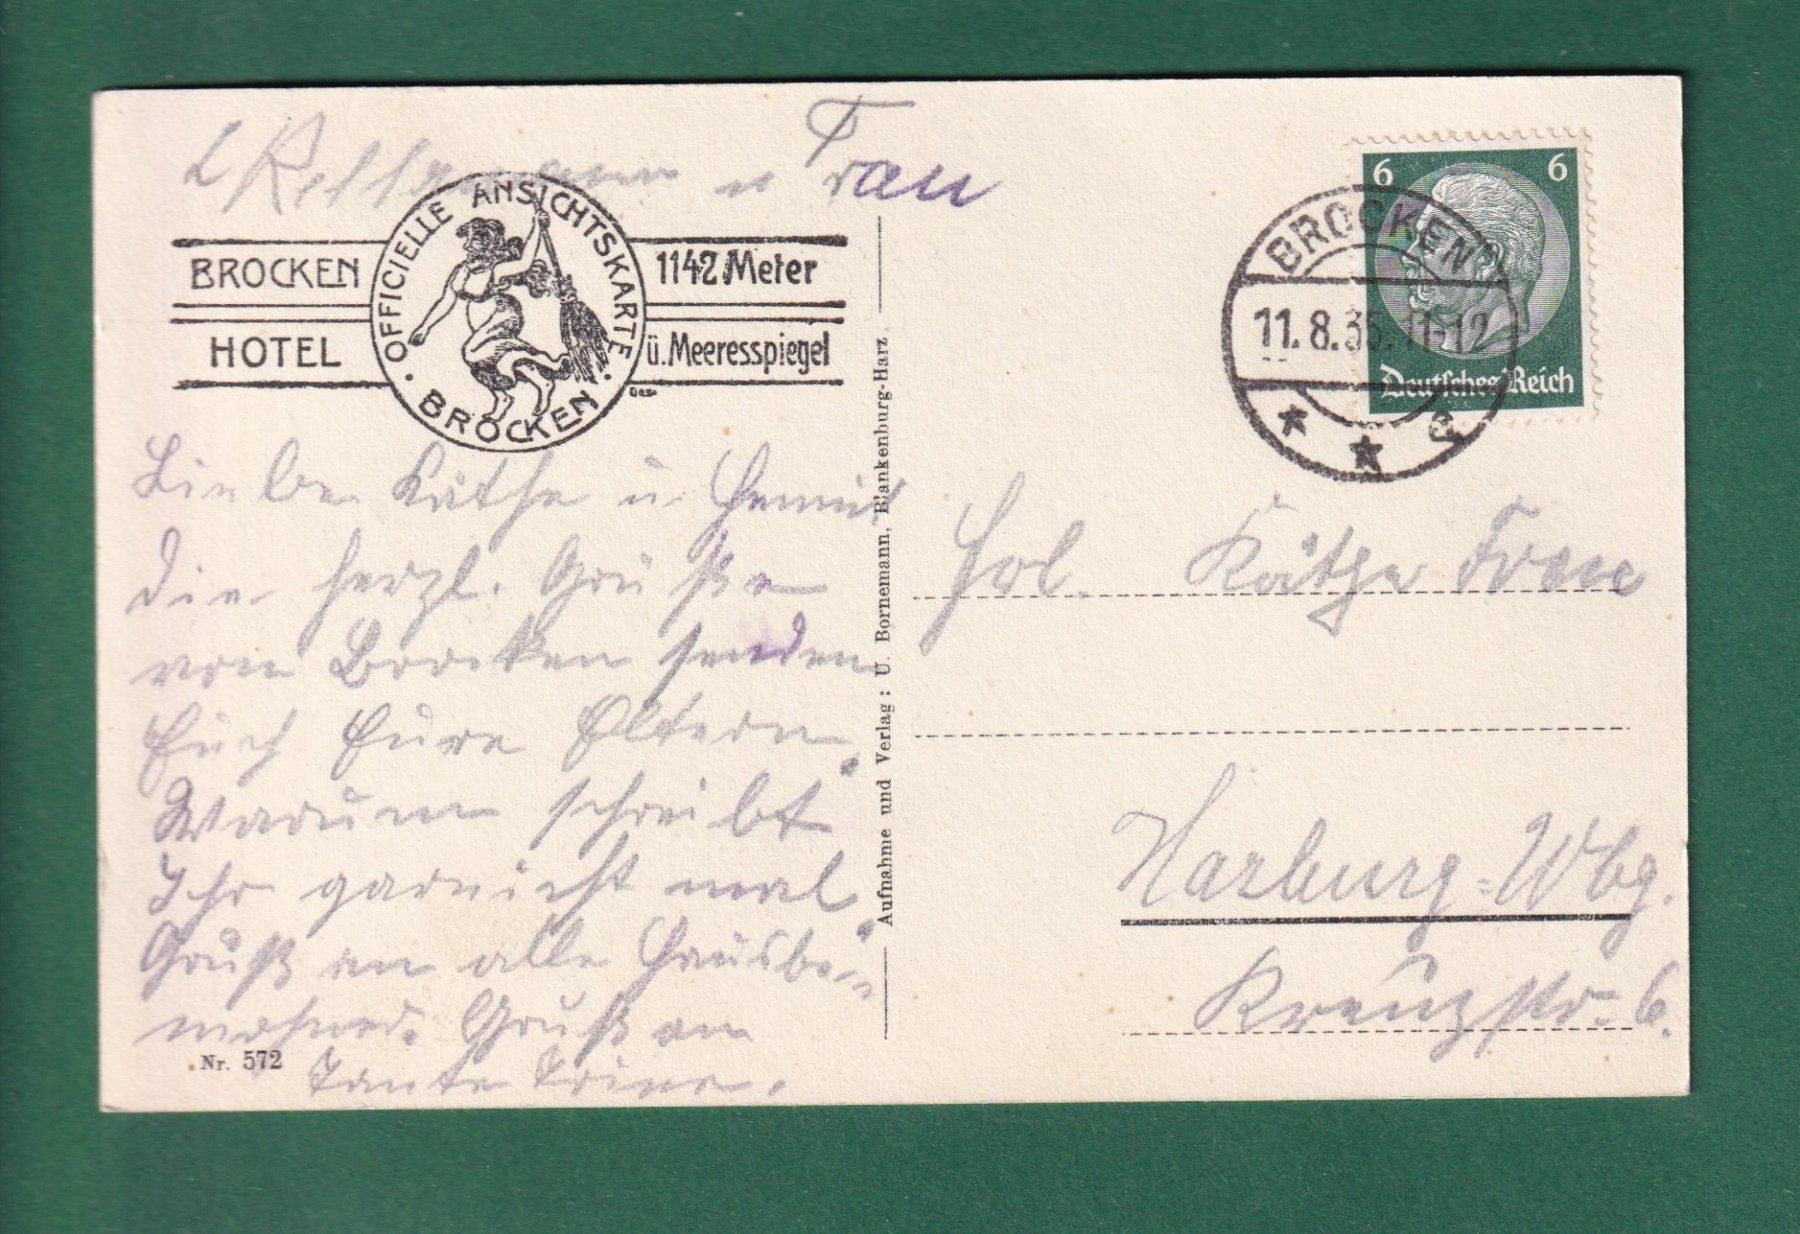 u Frau
OFFICIELLE ANSICHTSKARTE
BROCKEN
BROCKEN
HOTEL
1142 Meter
ü. Meeresspiegel
Liebe Käthe u.
die herzl. Grüße
vom Brocken senden
Euch Eure Eltern.
Warum schreibt
Ihr garnicht mal.
Gruß an alle Hausbe-
wohner. Gruß an
Tante Trine.
Nr. 572
Aufnahme und Verlag: U. Bornemann, Blankenburg-Harz
6 6
Deutsches Reich
BROCKEN
11.8.35.11-12
Frl. Käthe
Harburg-Wbg.
Kreuzstr. 6.